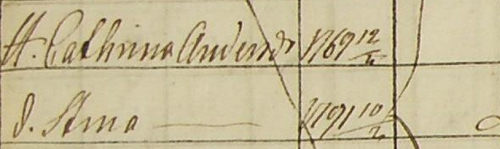 H. Cathrina Andersdr 1769 12/2
d. Stina 1791 10/2